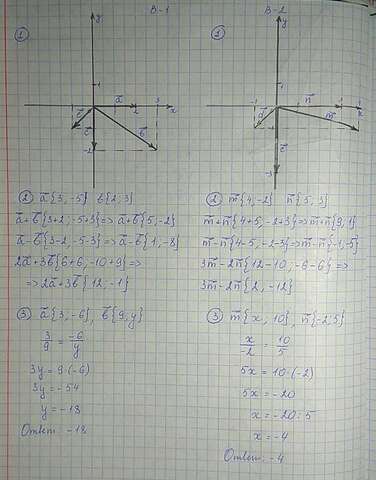 В-1
①
y
1
ā
2
3
x
c̄
b̄
-2
② ā{3,-5} b̄{2,3}
ā+b̄{3+2,-5+3}=>ā+b̄{5,-2}
ā-b̄{3-2,-5-3}=>ā-b̄{1,-8}
2ā+3b̄{6+6,-10+9}=>
=>2ā+3b̄{12,-1}
③ ā{3,-6}, b̄{9,y}
3/9 = -6/y
3y=9(-6)
3y=-54
y=-18
Ответ: -18
В-2
①
y
1
n̄
x
m̄
-3
② m̄{4,-2} n̄{5,3}
m̄+n̄{4+5,-2+3}=>m̄+n̄{9,1}
m̄-n̄{4-5,-2-3}=>m̄-n̄{-1,-5}
3m̄-2n̄{12-10,-6-6}=>
3m̄-2n̄{2,-12}
③ m̄{x,10}, n̄{-2,5}
x/-2 = 10/5
5x=10·(-2)
5x=-20
x=-20:5
x=-4
Ответ: -4